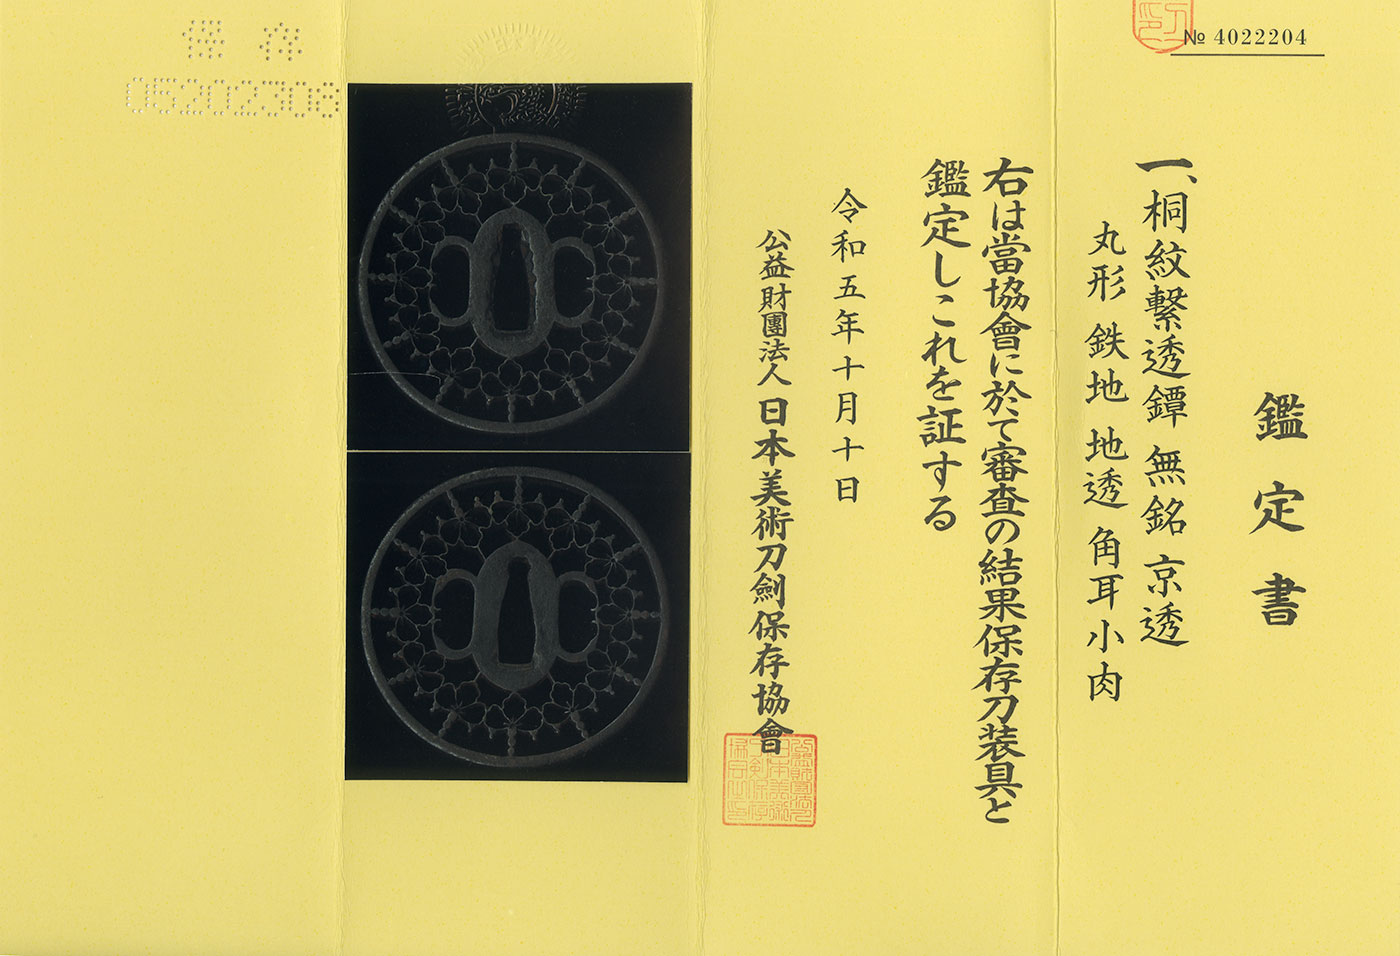 № 4022204
鑑定書
一、桐紋繋透鐔 無銘 京透
丸形 鉄地 地透 角耳小肉
右は當協會に於て審査の結果保存刀装具と
鑑定しこれを証する
令和五年十月十日
公益財團法人 日本美術刀劍保存協會
保存
05202308